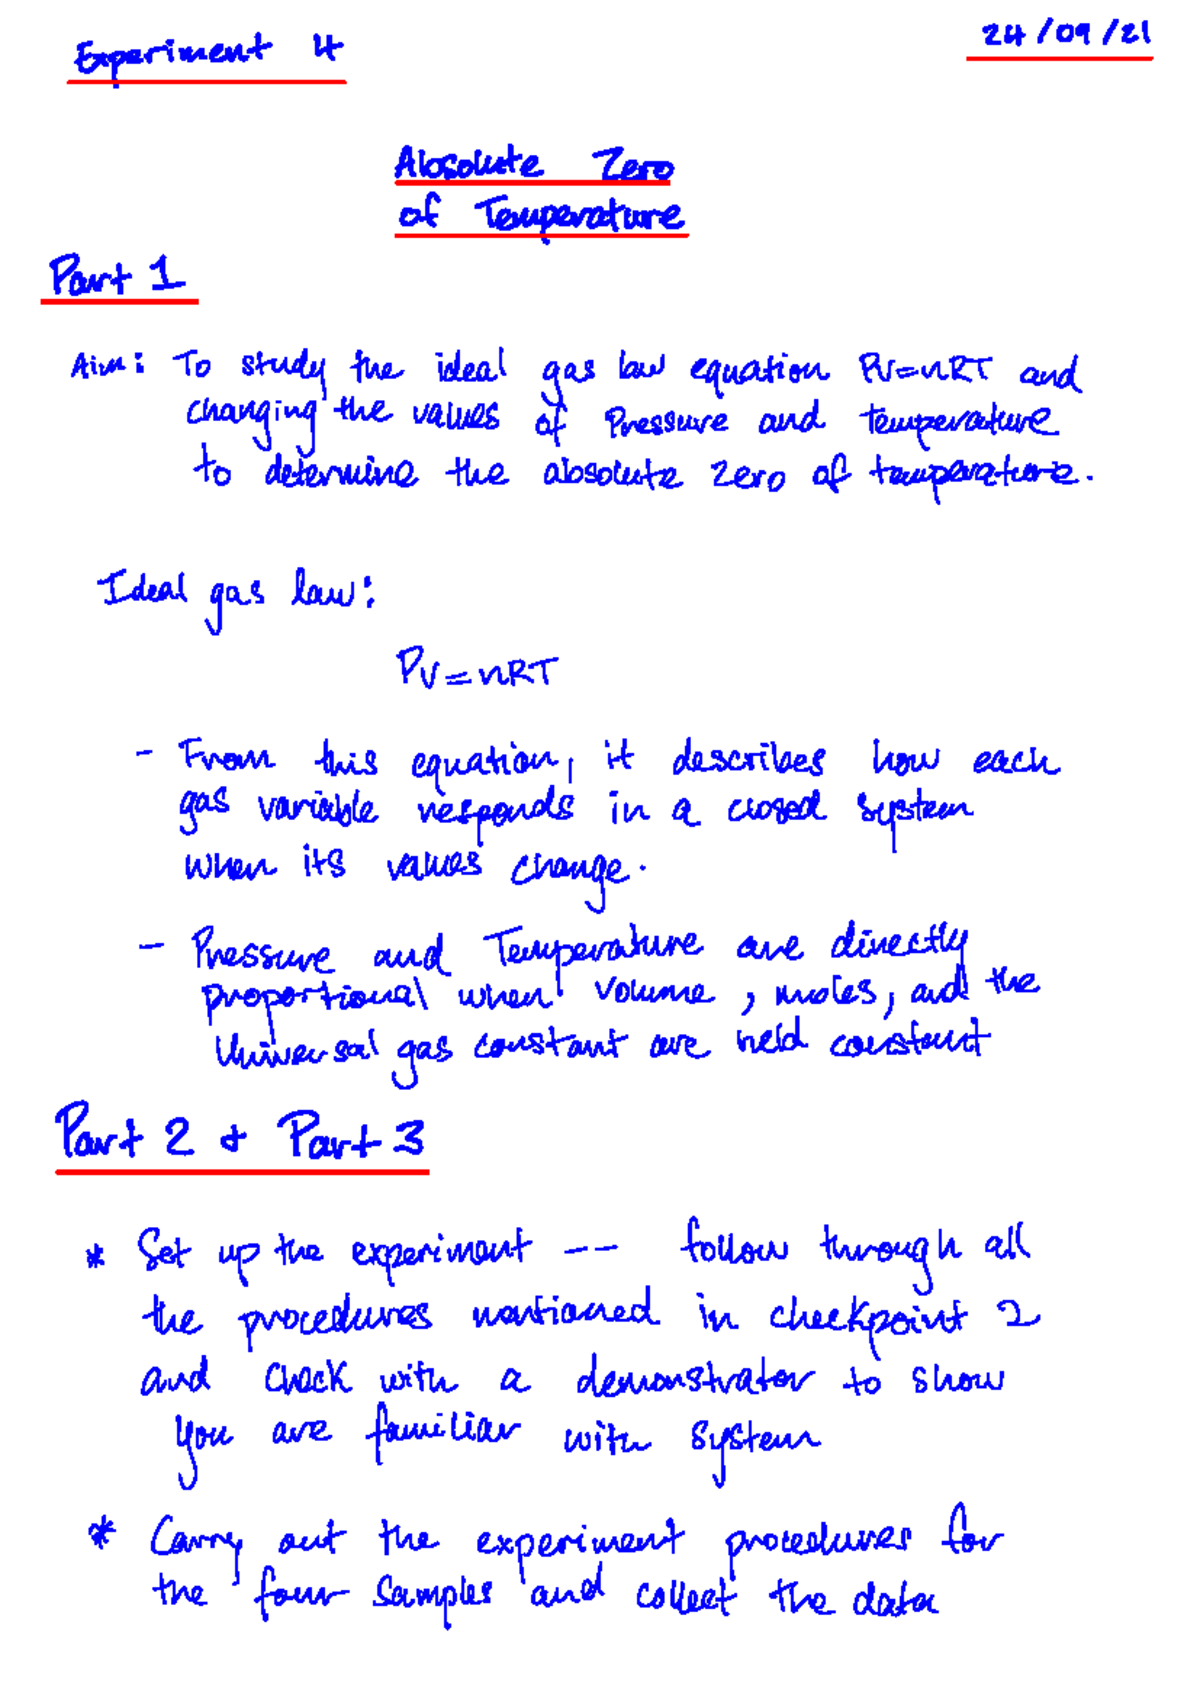 Experiment 4
24/09/21
Absolute Zero
of Temperature
Part 1
Aim: To study the ideal gas law equation PV=nRT and
changing the values of Pressure and Temperature
to determine the absolute zero of temperature.
Ideal gas law:
PV=nRT
- From this equation, it describes how each
gas variable responds in a closed system
when its values change.
- Pressure and Temperature are directly
proportional when volume, moles, and the
Universal gas constant are held constant
Part 2 + Part 3
* Set up the experiment -- follow through all
the procedures mentioned in checkpoint 2
and check with a demonstrator to show
you are familiar with system
* Carry out the experiment procedures for
the four samples and collect the data